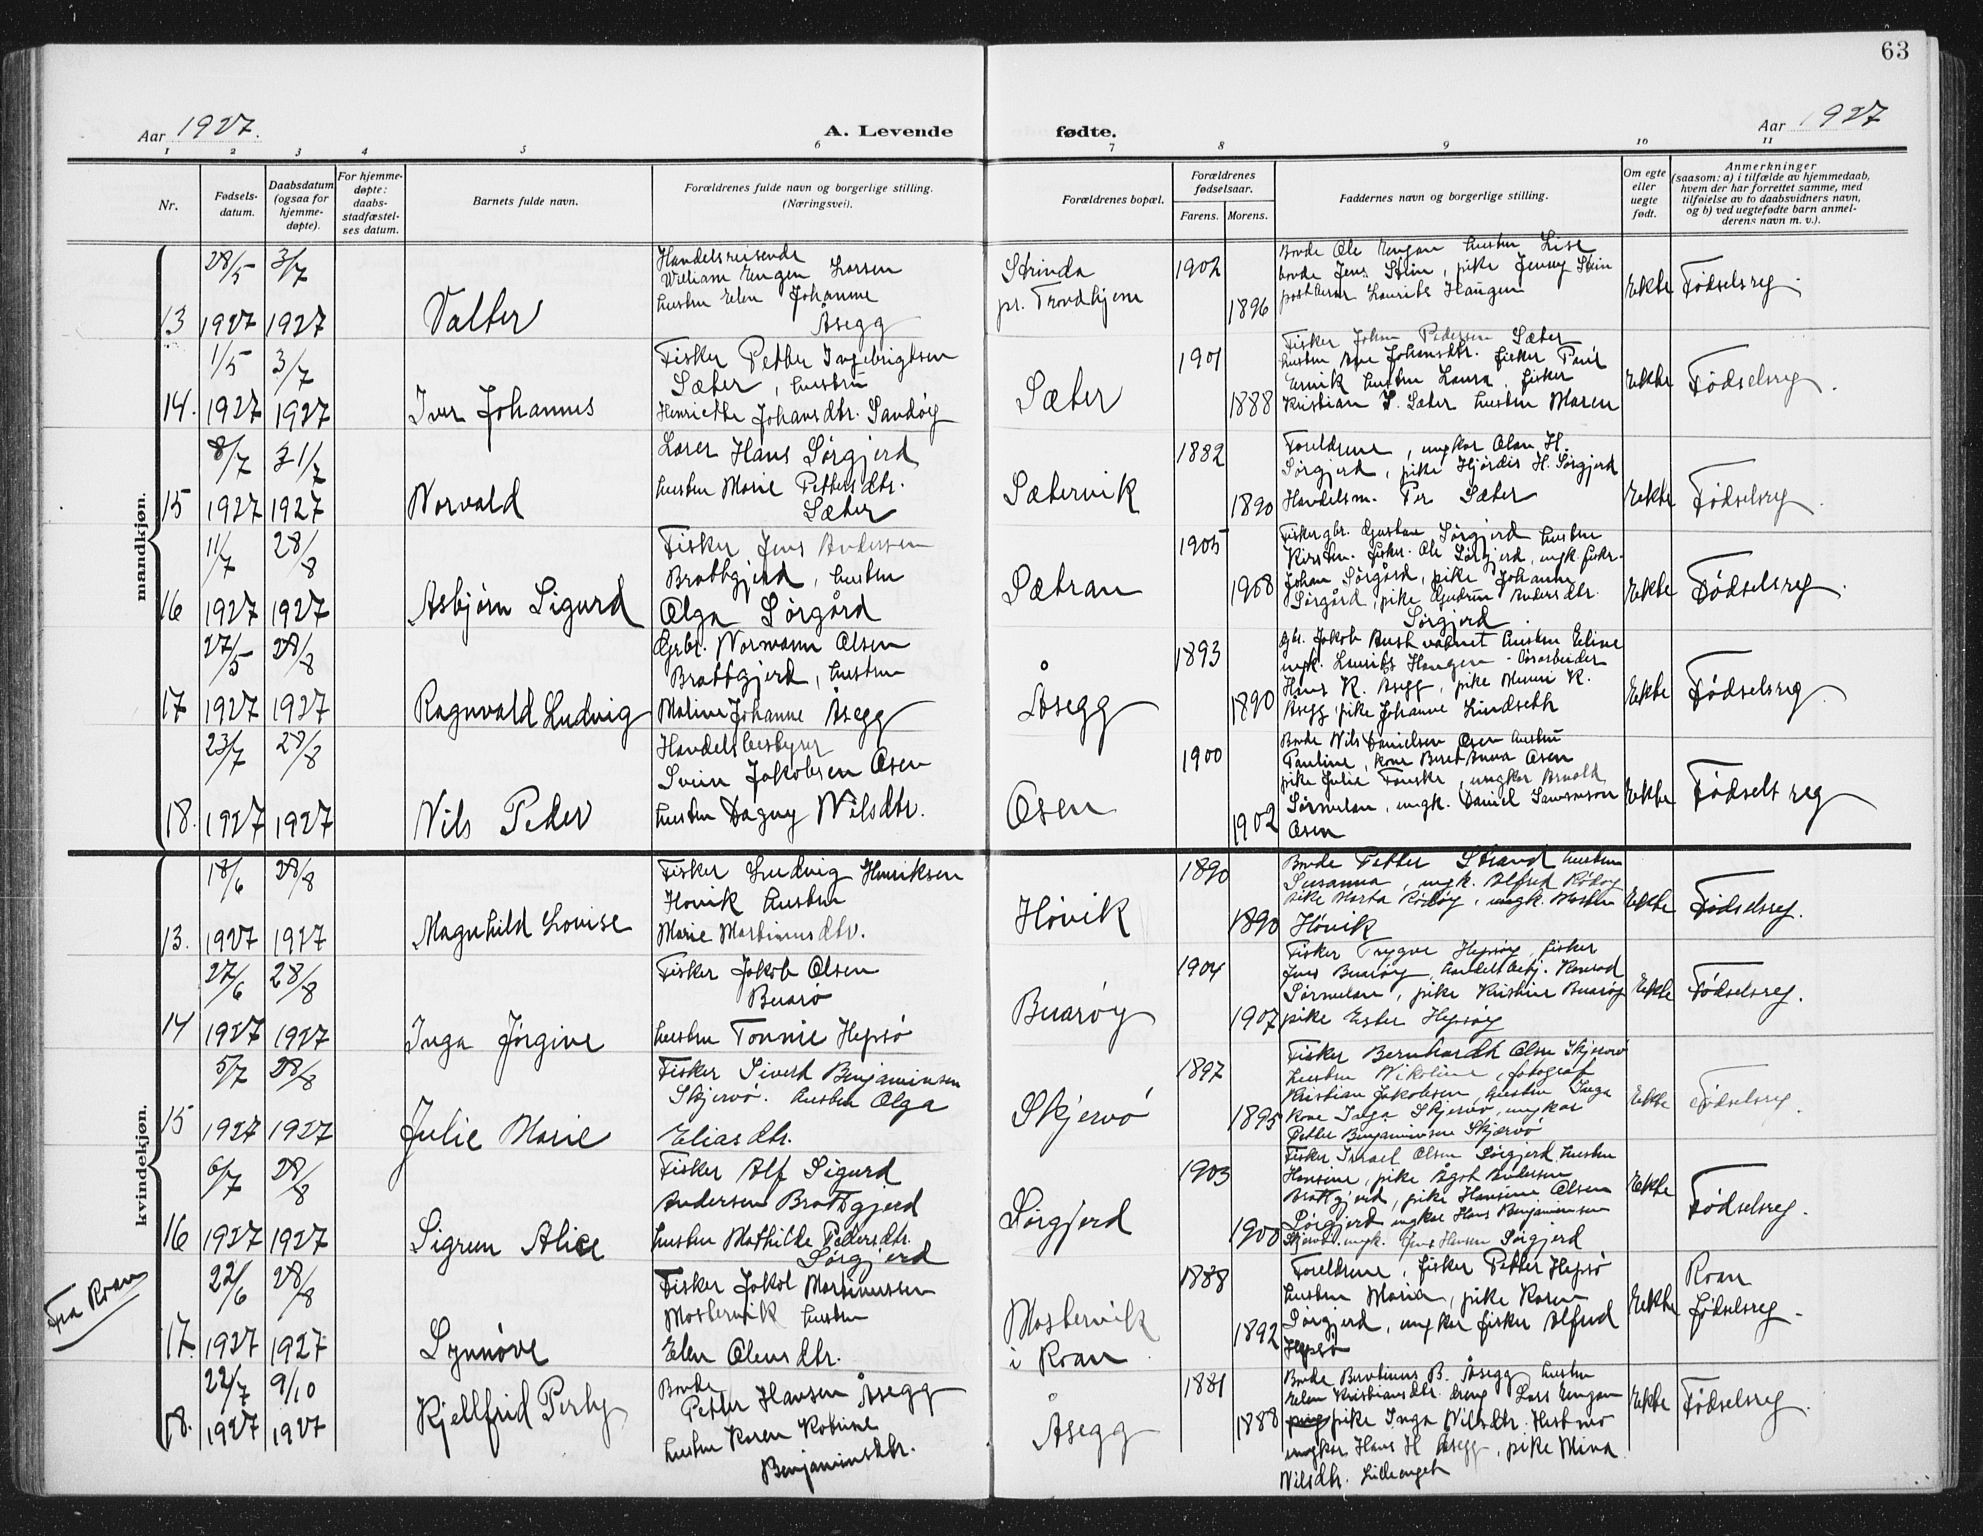 63
Aar 1927.
A. Levende fødte.
Aar 1927
1 2 3 4 5 6 7 8 9 10 11
Nr.
Fødsels-
datum.
Daabsdatum
(ogsaa for
hjemme-
døpte).
For hjemme-
døpte:
daabs-
stadfæstel-
ses datum.
Barnets fulde navn.
Forældrenes fulde navn og borgerlige stilling.
(Næringsvei).
Forældrenes bopæl.
Forældrenes
fødselsaar.
Farens. Morens.
Faddernes navn og borgerlige stilling.
Om egte
eller
uegte
født.
Anmerkninger
(saasom: a) i tilfælde av hjemmedaab,
hvem der har forrettet samme, med
tilføielse av to daabsvidners navn,
og b) ved uegtefødte barn anmel-
derens navn m. v.).
mandkjøn.
13
28/5
1927
3/7
1927
Valter
Handelsreisende
William Eugen Larsen
hustru Elen Johanne
Åsegg
Strinda
pr. Trondhjem
1902
1896
Bonde Ole hustru Lise
bonde Jens Stein, pike Jenny Stein
Laurits Haugen
Ekte
Fødselsreg.
14.
1/5
1927
3/7
1927
Iver Johannes
Fisker Petter Ingebrigtsen
Sæter, hustru
Henriette Johansdtr. Sandøy
Sæter
1901
1888
Fisker Johan Pedersen Sæter
hustru Johansdtr. fisker
hustru Laura, fisker
Kristian Sæter hustru Maren
Ekte
Fødselsreg.
15
8/7
1927
31/7
1927
Norvald
Lærer Hans Sørgjerd
hustru Marie Pettersdtr.
Sæter
Sætervik
1882
1890
Foreldrene, ungkar Olav H.
Sørgjerd, pike Hjørdis H. Sørgjerd
Handelsm. Per Sæter
Ekte
Fødselsreg.
16
11/7
1927
28/8
1927
Asbjørn Sigurd
Fisker Jens Andersen
Brattgjerd, hustru
Olga Sørgård
Sætran
1905
1908
Fisker gbr. Gustav Sørgjerd hustru
Kirsten. fisker. Ole Sørgjerd, ungk. fiskr.
Johan Sørgård, pike Johanne
Sørgård, pike Gudrun Andersdtr.
Sørgjerd.
Ekte
Fødselsreg.
17
27/5
1927
28/8
1927
Ragnvald Ludvig
Grbr. Normann Olsen
Brattgjerd, hustru
Maline Johanne Åsegg
Åsegg
1893
1890
Gbr. Jakob hustru Eline
ungk. Laurits Haugen
Hans K. Åsegg, pike K.
Åsegg pike Johanne Lindseth
Ekte
Fødselsreg.
18.
23/7
1927
28/8
1927
Nils Peder
Handelsbestyrer
Svein Jakobsen Osen
hustru Dagny Nilsdtr.
Osen
1900
1902
Bonde Nils Danielsen Osen hustru
Pauline, kone Beret Anna Osen
pike Julie Fauske, ungkar Arnold
Sørmelan, ungk. Daniel
Osen
Ekte
Fødselsreg
kvindekjøn.
13.
18/6
1927
28/8
1927
Magnhild Lovise
Fisker Ludvig Henriksen
Høvik hustru
Marie Martinusdtr.
Høvik
1890
1890
Bonde Petter Strand hustru
Susanna, ungk. Alfred Rødøy
pike Marta Rødøy, ungk. Morten
Høvik
Ekte
Fødselsreg.
14
27/6
1927
28/8
1927
Inga Jørgine
Fisker Jakob Olsen
Buarø
hustru Tonnie Hepsø
Buarøy
1904
1907
Fisker Trygve Hepsøy, fisker
Jens Buarøy, handelsbetj. Konrad
Sørmelan, pike Kristine Buarøy
pike Ester Hepsøy
Ekte
Fødselsreg.
15
5/7
1927
28/8
1927
Julie Marie
Fisker Sivert Benjaminsen
Skjervø. hustru Olga
Eliasdtr.
Skjervø
1897
1895
Fisker Bernhardt Olsen Skjervø
hustru Nikoline, fotograf
Kristian Jakobsen, hustru Inga
kone Inga Skjervø, ungkar
Petter Benjaminsen Skjærvø
Ekte
Fødselsreg.
16
6/7
1927
28/8
1927
Sigrun Alice
Fisker Alf Sigurd
Andersen Brattgjerd
hustru Mathilde Pedersdtr.
Sørgjerd
Sørgjerd
1903
1900
Fisker Israel Olsen Sørgjerd hustru
Hansine, pike Ågot Andersen
Brattgjerd, pike Hansine Olsen
Sørgjerd ungkar Hans Benjaminsen
Skjervø. ungk. Jens Hansen Sørgjerd
Ekte
Fødselsreg.
Fra Roan
17.
22/6
1927
28/8
1927
Synnøve
Fisker Jakob Martinussen
Mostervik hustru
Elen Olausdtr.
Mostervik
i Roan
1888
1892
Foreldrene, fisker Petter Hepsø
hustru Maria, pike Karen
Sørgjerd, ungkar fisker Alfred
Hepsø
Ekte
Roan
fødselsreg.
18.
22/7
1927
9/10
1927
Kjellfrid Perly
Bonde
Petter Hansen Åsegg
hustru Karen Katrine
Benjaminsdtr.
Åsegg
1881
1888
Bonde B. Åsegg hustru
Elen Kristiansdtr. dreng Lars
pike Inga Nilsdtr.
ungkar Hans H Åsegg, pike Mina
Nilsdtr. Lilleenget
Ekte
Fødselsreg.